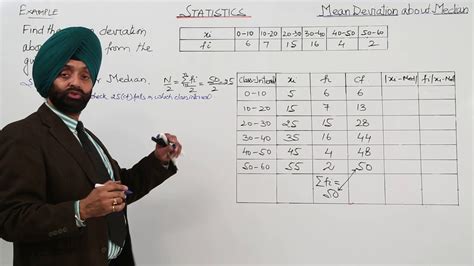 EXAMPLE STATISTICS MEAN DEVIATION ABOUT MEDIAN
Find the deviation
abo from the
gi
xi 0-10 10-20 20-30 30-40 40-50 50-60
fi 6 7 15 16 4 2
Median. N/2 = Σfi/2 = 50/2 = 25
check 25 (cf) falls in which class interval
Class-Interval xi fi cf |xi-Med| fi|xi-Med|
0-10 5 6 6
10-20 15 7 13
20-30 25 15 28
30-40 35 16 44
40-50 45 4 48
50-60 55 2 50
Σfi =
50